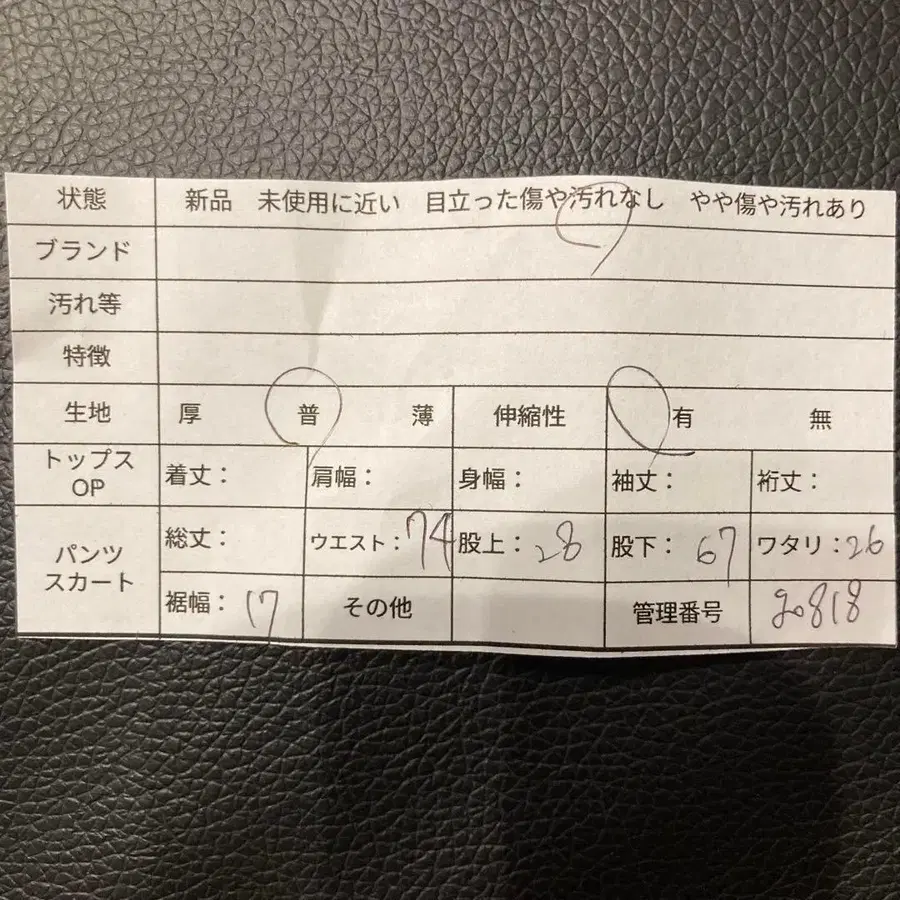 状態 新品 未使用に近い 目立った傷や汚れなし やや傷や汚れあり
ブランド
汚れ等
特徴
生地 厚 普 薄 伸縮性 有 無
トップス
OP
着丈： 肩幅： 身幅： 袖丈： 裄丈：
パンツ
スカート
総丈： ウエスト：74 股上：28 股下：67 ワタリ：26
裾幅：17 その他 管理番号 g0818